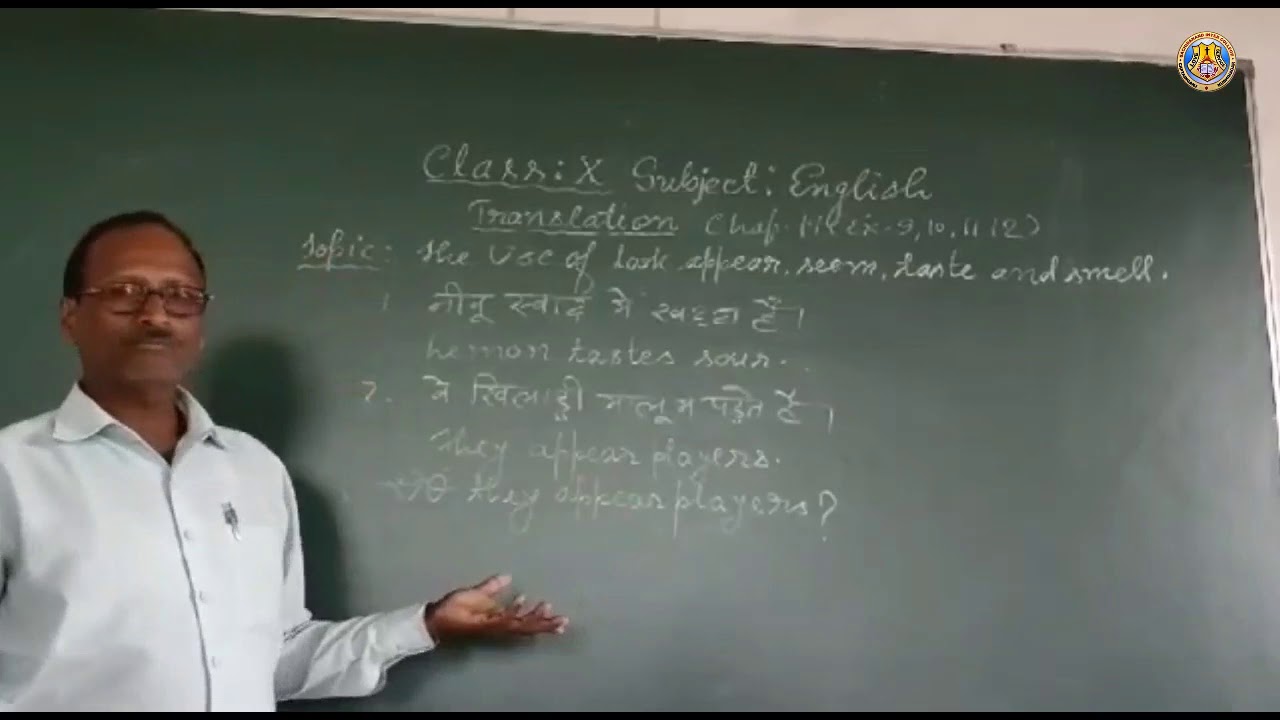 Class: X Subject: English
Translation Chap.
Topic: The Use of look, appear, seem, taste and smell.
1. नीबू स्वाद में खट्टा है।
Lemon tastes sour.
2. वे खिलाड़ी मालूम पड़ते हैं।
They appear players.
they appear players?